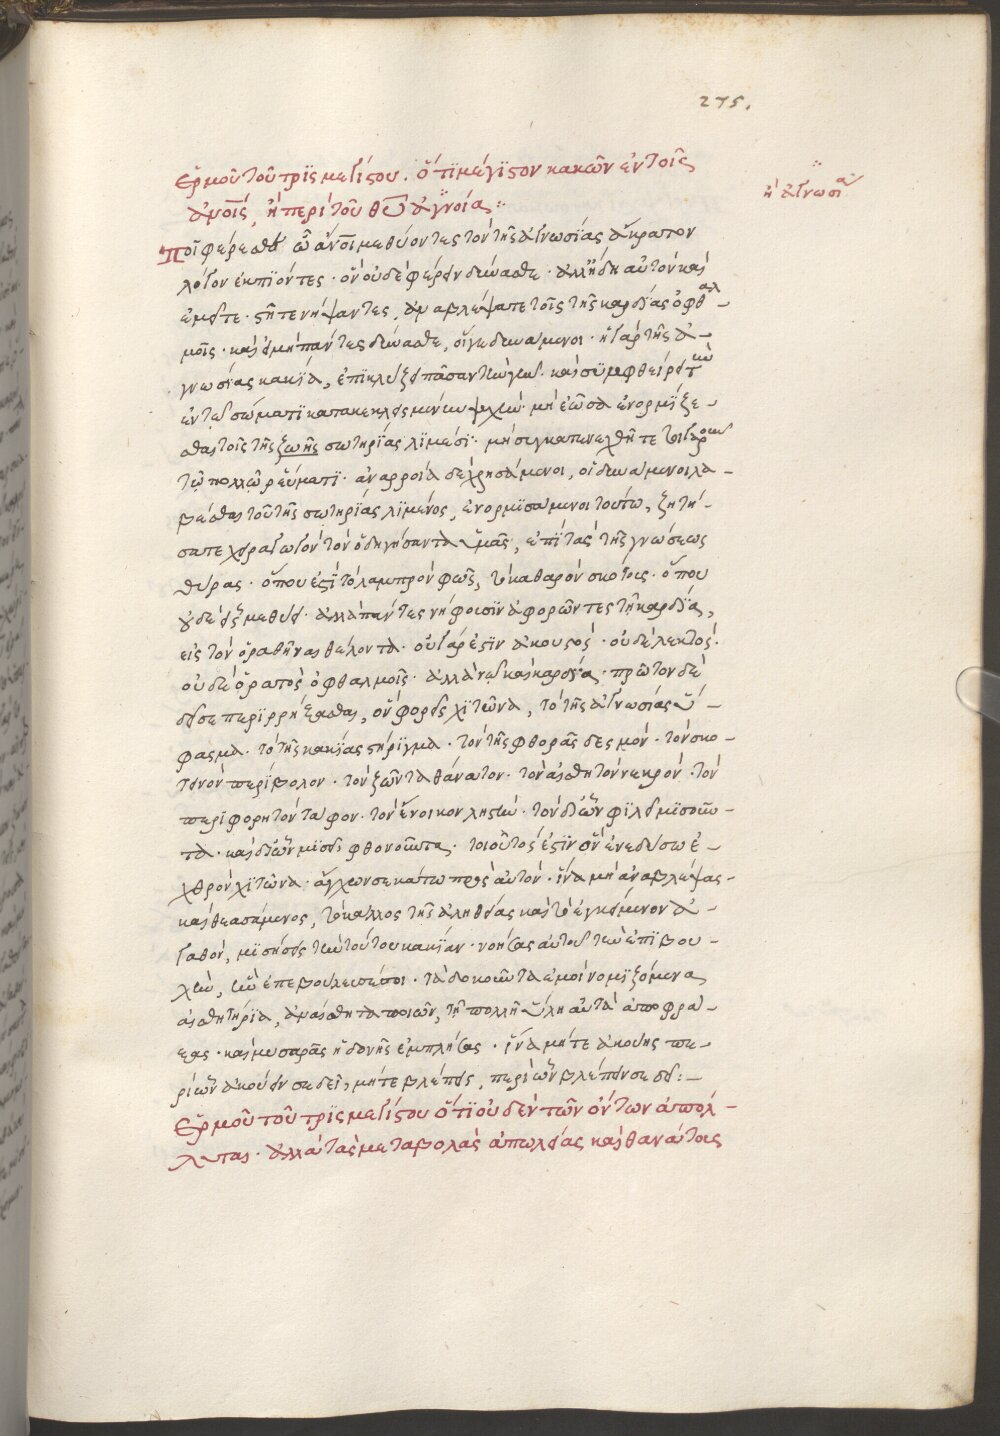 275.
Ἑρμοῦ τοῦ τρϊς μεγίςου. ὅτϊ μέγϊςον κακῶν ἐν τοῖς
ἀνοις, ἡ περὶ τοῦ θῦ ἀγνοία:
ἡ ἀγνωσία
Ποῖ φέρεσθε ὦ ἄνοι μεθύοντες τὸν τῆς ἀγνωσίας ἄκρατον
λόγον ἐκπϊόντες. ὃν οὐδὲ φέρειν δύνασθε. ἀλλ' ἤδη αὐτὸν καὶ
ἐμεῖτε. ςῆτε νήψαντες, ἀναβλέψατε τοῖς τῆς καρδίας ὀφθαλ-
μοῖς. καὶ εἰ μὴ πάντες δύνασθε, οἵγε δυνάμενοι. ἡ γὰρ τῆς ἀ-
γνωσίας κακϊα, ἐπϊκλύζει πᾶσαν τὴν γῆν. καὶ συμφθείρει τὴν
ἐν τῷ σώματϊ κατακεκλεισμένην ψυχὴν. μὴ ἐῶσα ἐνορμϊζε-
σθαι τοῖς τῆς ζωῆς σωτηρίας λϊμέσϊ. μὴ συγκατενεχθῆτε τοιγαροῦν
τῷ πολλῷ ῥεύματϊ. ἀναρροία δὲ χρησάμενοι, οἱ δυνάμενοι λα-
βέσθαι τοῦ τῆς σωτηρϊας λϊμένος, ἐνορμϊσάμενοι τούτω, ζητή-
σατε χειραγωγὸν τὸν ὁδηγήσαντα ὑμᾶς, ἐπὶ τὰς τῆς γνώσεως
θύρας. ὅπου ἐςὶ τὸ λαμπρὸν φῶς, τὸ καθαρὸν σκότους. ὅπου
οὐδὲ εἷς μεθύει. ἀλλὰ πάντες νήφουσϊν ἀφορῶντες τῇ καρδϊα,
εἰς τὸν ὁραθῆναι θέλοντα. οὐ γὰρ ἐςϊν ἀκουςός. οὐδὲ λεκτός.
οὐδὲ ὁρατὸς ὀφθαλμοῖς. ἀλλὰ νῷ καὶ καρδία. πρῶτον δὲ
δεῖ σε περϊρρήξασθαι, ὃν φορεῖς χϊτῶνα, τὸ τῆς ἀγνωσίας ὕ-
φασμα. τὸ τῆς κακϊας ςήρϊγμα. τὸν τῆς φθορᾶς δεσμόν. τὸν σκο-
τεινὸν περίβολον. τὸν ζῶντα θάνατον. τὸν αἰσθητὸν νεκρόν. τὸν
περϊφορητὸν τάφον. τὸν ἔνοικον ληςήν. τὸν δι' ὧν φϊλεῖ μϊσοῦν-
τα. καὶ δι' ὧν μϊσεῖ φθονοῦντα. τοιοῦτός ἐςϊν ὃν ἐνεδύσω ἐ-
χθρὸν χϊτῶνα. ἄγχων σε κάτω πρὸς αὐτόν. ἵνα μὴ ἀναβλέψας
καὶ θεασάμενος, τὸ κάλλος τῆς ἀληθείας καὶ τὸ ἐγκείμενον ἀ-
γαθόν, μϊσήσεις τὴν τούτου κακϊαν. νοήσας αὐτοῦ τὴν ἐπϊβου-
λὴν, ἣν ἐπεβούλευσέ σοι. τὰ δοκοῦντα ἐμοὶ νομϊζόμενα
αἰσθητήρϊα, ἀναίσθητα ποιῶν, τῇ πολλῇ ὕλη αὐτὰ ἀποφρά-
ξας. καὶ μυσαρᾶς ἡδονῆς ἐμπλήσας. ἵνα μήτε ἀκούης πε-
ρὶ ὧν ἀκούειν σε δεῖ, μήτε βλέπεις, περὶ ὧν βλέπειν σε δεῖ:-
Ἑρμοῦ τοῦ τρϊς μεγίςου ὅτϊ οὐδὲν τῶν ὄντων ἀπόλ-
λυται. ἀλλὰ τὰς μεταβολὰς ἀπωλείας καὶ θανάτους